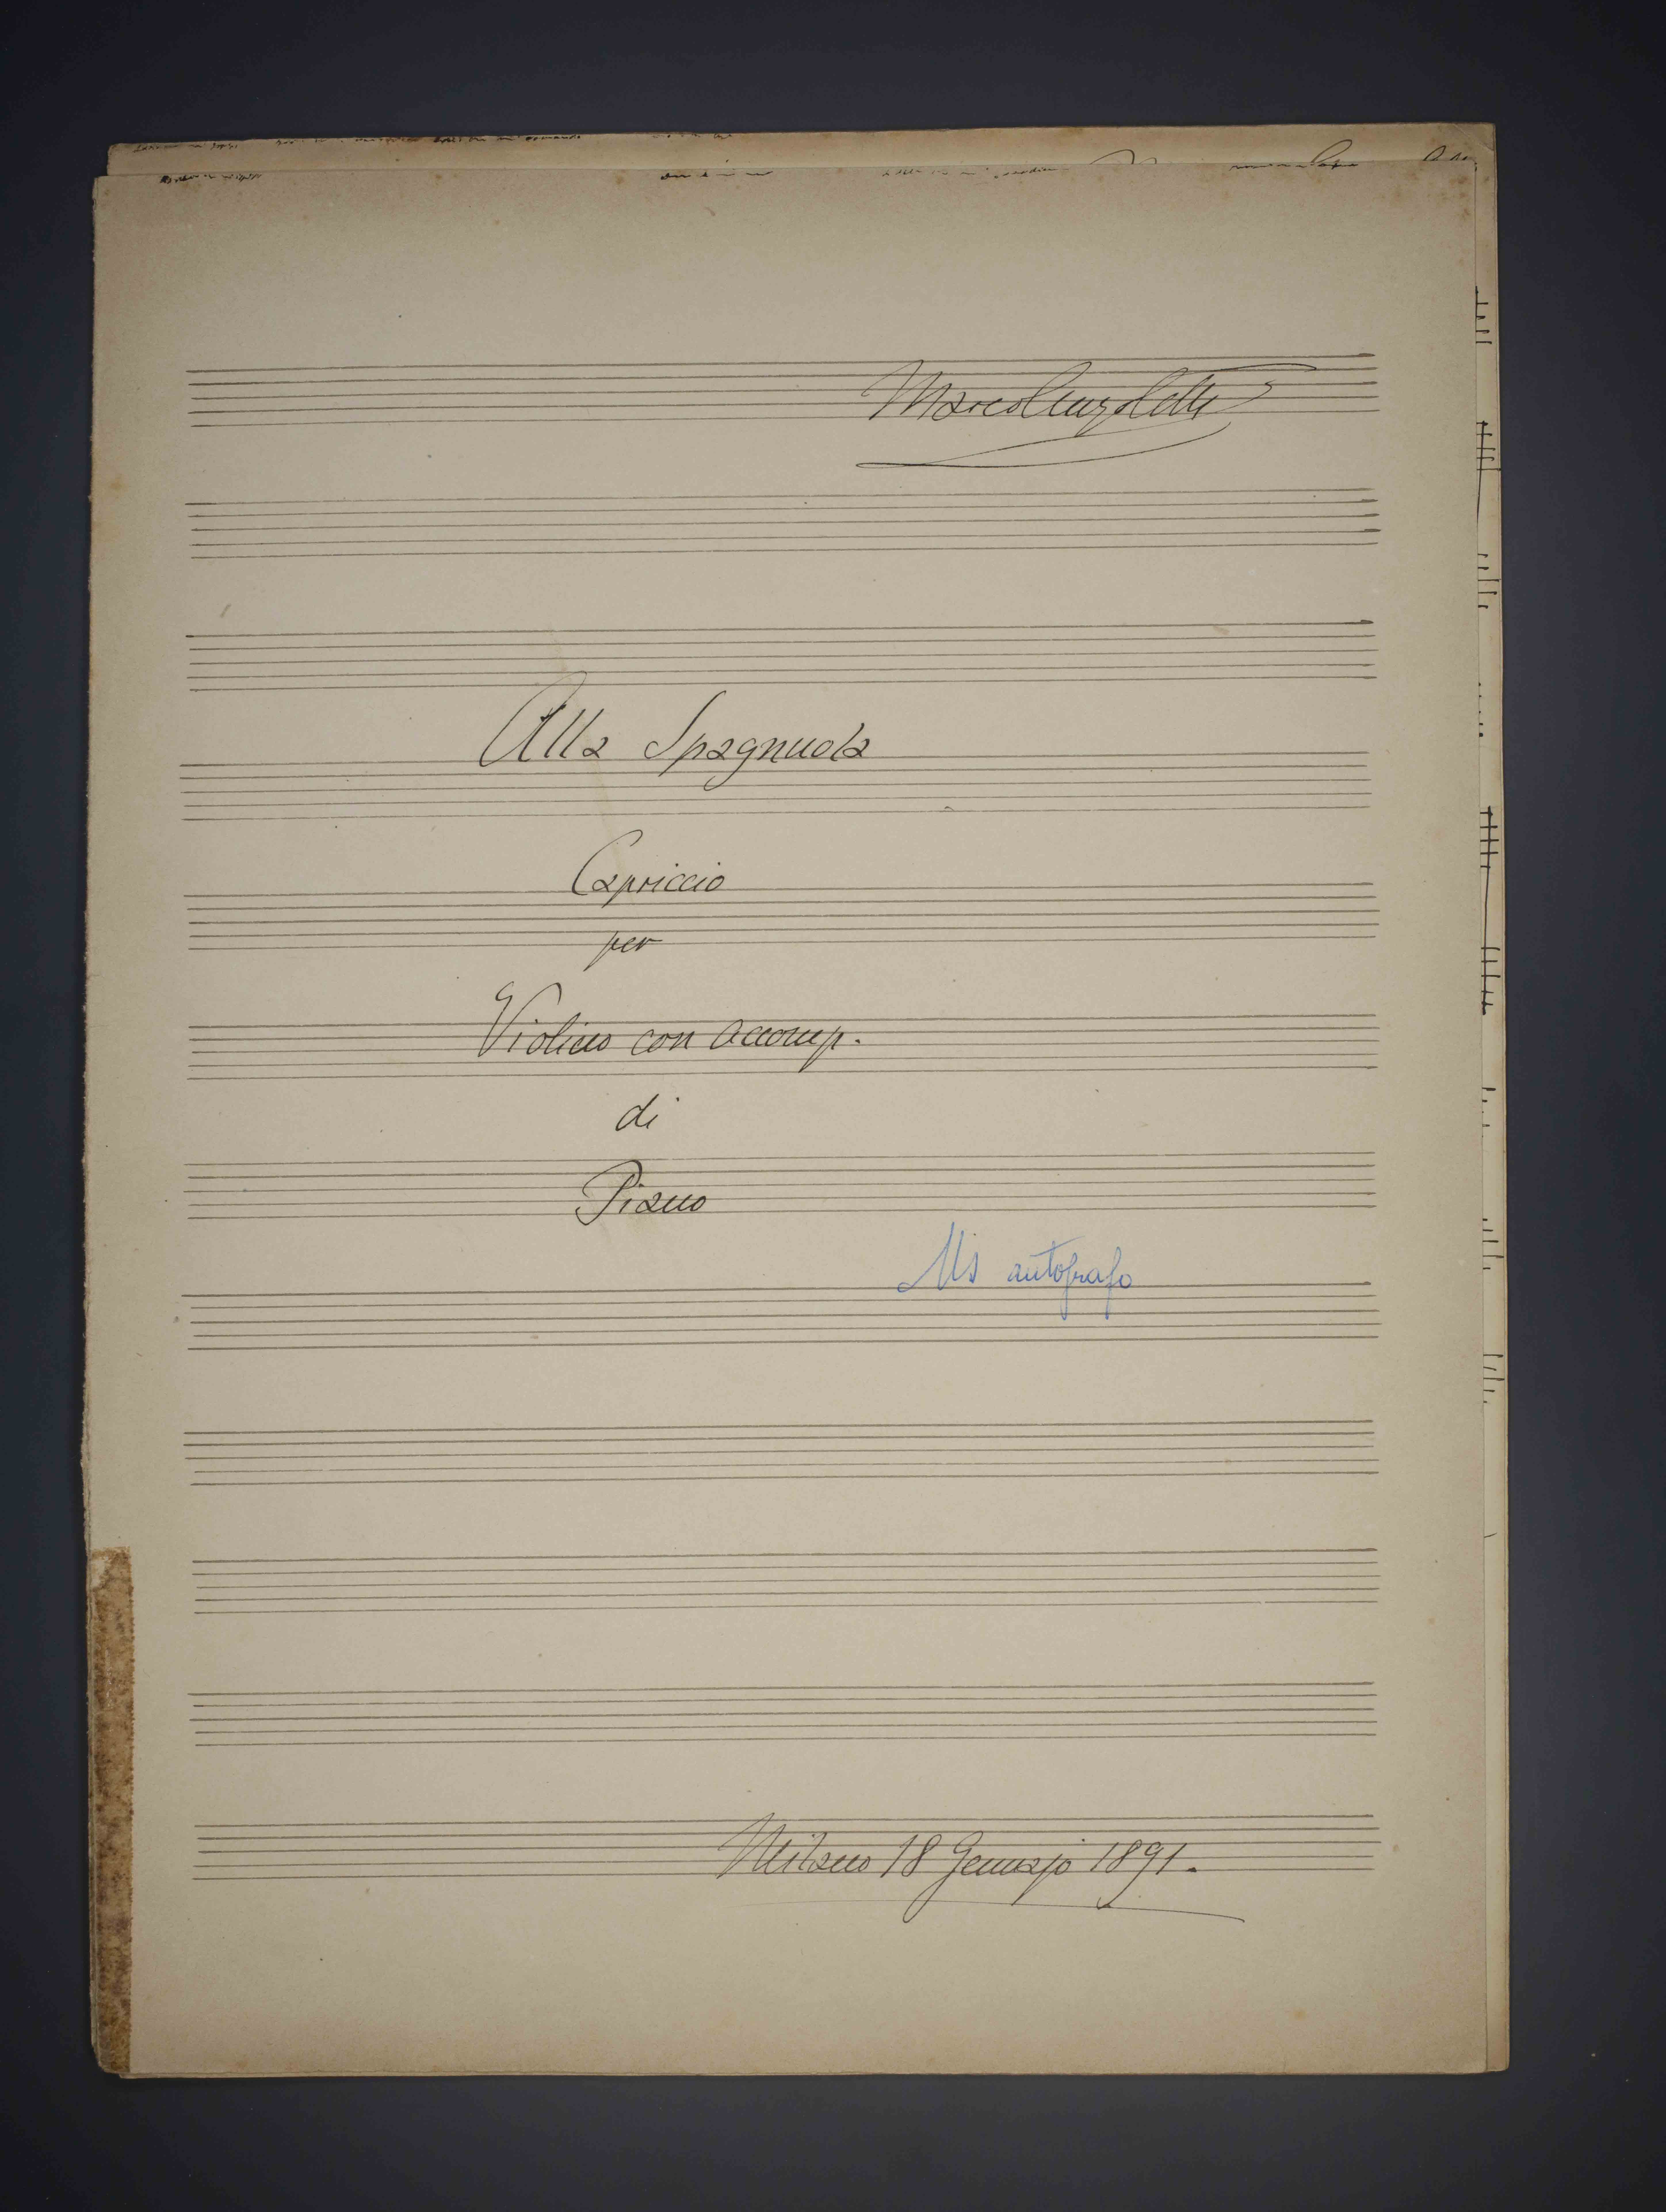 Marco Anzoletti
Alla Spagnuola
Capriccio
per
Violino con accomp.
di
Piano
Ms autografo
Milano 18 Gennajo 1891.